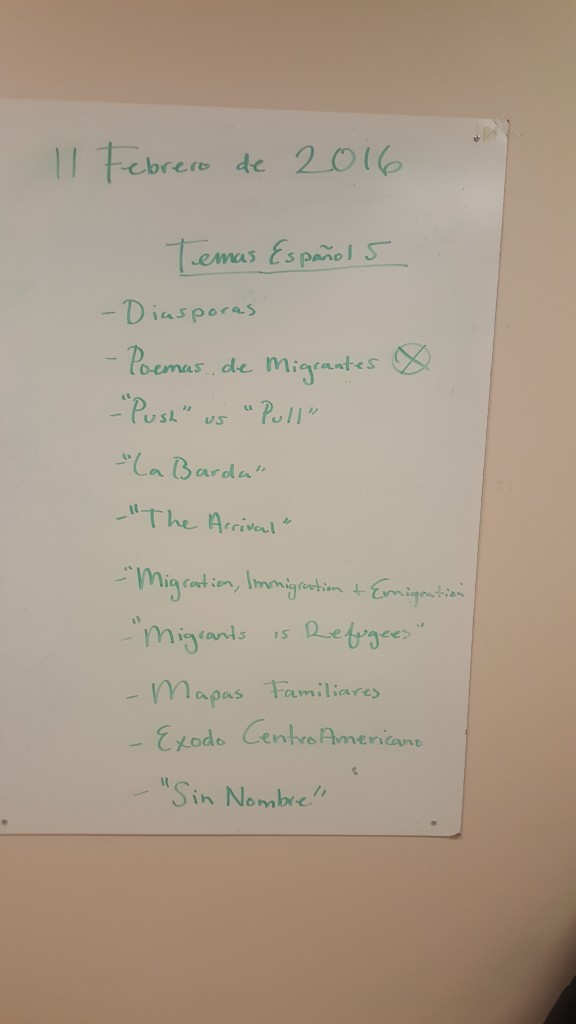 11 Febrero de 2016
Temas Español 5
- Diasporas
- Poemas de Migrantes ⊗
- "Push" vs "Pull"
- "La Barda"
- "The Arrival"
- "Migration, Immigration + Emigration
- "Migrants is Refugees"
- Mapas Familiares
- Exodo CentroAmericano
- "Sin Nombre"